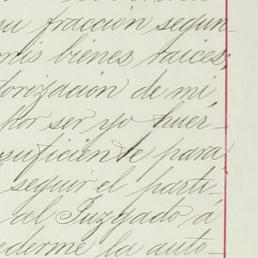 su fracción segun-
mis bienes raices;
torización de mi
por ser yo huér-
suficiente para
seguir el parti-
al Juzgado á
cederme la auto-